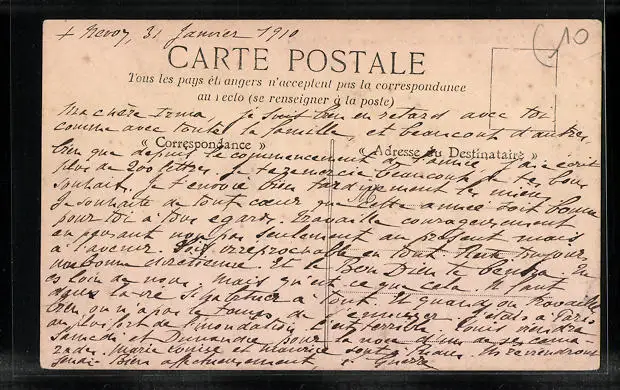 + Nevoy, 31 Janvier 1910
10
CARTE POSTALE
Tous les pays étrangers n'acceptent pas la correspondance
au recto (se renseigner à la poste)
Ma chère Irma, je suis bien en retard avec toi
comme avec toute la famille, et beaucoup d'autres
« Correspondance » « Adresse du Destinataire »
bien que depuis le commencement de l'année j'aie écrit
plus de 200 lettres. Je te remercie beaucoup de tes bons
souhaits. Je t'envoie bien tardivement les miens
Je souhaite de tout cœur que cette année soit bonne
pour toi à tous égards. Travaille courageusement
en pensant non pas seulement au présent mais
à l'avenir. Sois irréprochable en tout. Reste toujours
une bonne chrétienne. Et le Bon Dieu te bénira. Tu
es loin de nous. Mais qu'est-ce que cela. Il faut
dans la vie s'habituer à tout. Et quand on travaille
bien, on n'a pas le temps de s'ennuyer. J'étais à Paris
au plus fort de l'inondation. C'est terrible. Louis viendra
Samedi et Dimanche pour la noce d'un de ses cama-
rades. Marie Louise et Maurice sont à Gien. Ils reviendront
Jeudi. Bien affectueusement,